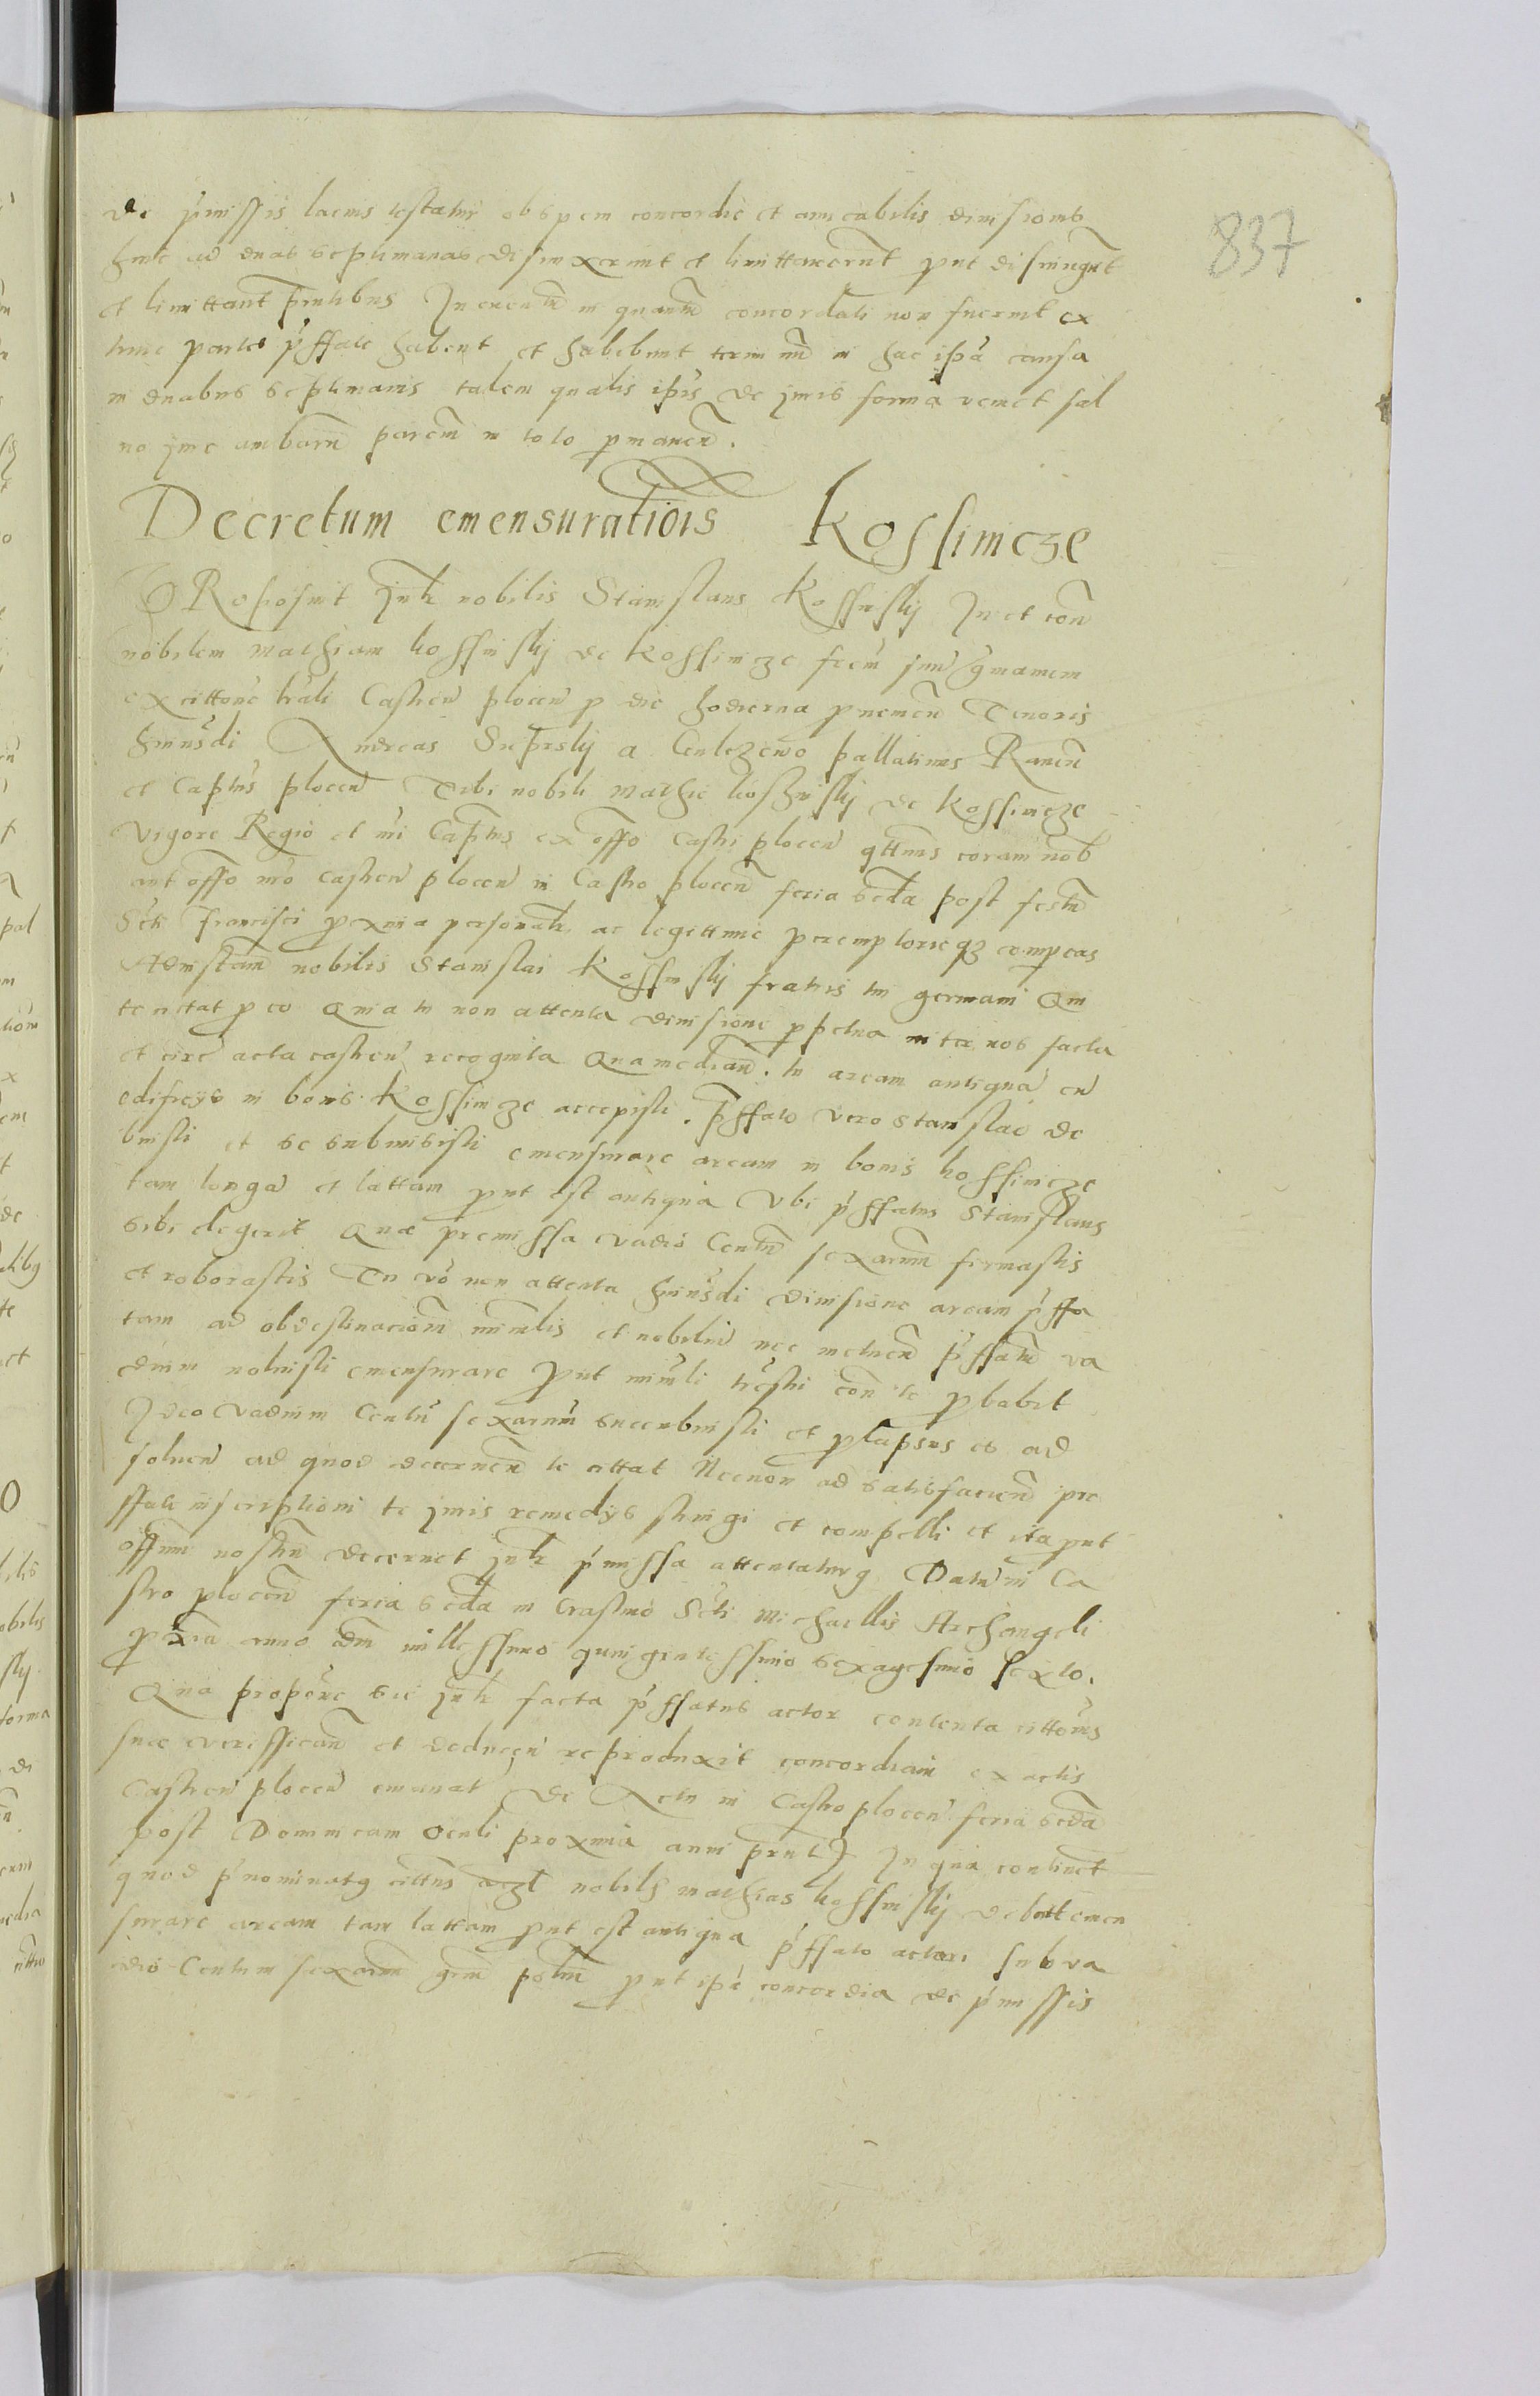 837
de pmissis lacius testatur ob spem concordie et amicabilis divisionis
hinc ad duas septimanas distinxerunt et limittaverunt put distingunt
et limittant pntibus In eventu in quantu concordati non fuerint ex
tunc partes pffate habent et habebunt terminu in hac ipa causa
in duabus septimanis talem qualis ipis de juris forma veniet sal
vo jure ambaru parciu in toto pmanen.
Decretum emensurationis Kossinicze
PRoposuit judr nobilis Stanislaus Kossinskj In et con
nobilem Mathiam kossinskj de Kossinicze frem suu gmanum
ex cittone trali Castren plocen p die hodierna pvenien Tenoris
huiusdi Andreas Sieprskj a Gulczewo pallatinus Raven
et Captus plocen Tibi nobili Mathie Koszinskj de Kossinicze
Vigore Regio et mi Captus ex offo Castri plocen qttenus coram nob
aut offo nro castren plocen in Castro plocen feria scda post festu
Scti Francisci pxima personalr ac legittime peremptorieqz compeas
Ad instan nobilis Stanislai Kossinskj fratris tui germani Qui
te cittat p eo Quia tu non attenta divisione ppetua inter nos facta
et circa acta castren recognita Qua median. tu aream antiqua cu
edificijs in bonis Kossinicze accepisti. pffato vero Stanislao de
buisti et se submisisti emensurare aream in bonis kossinicze
tam longa et lattam put est antiqua Vbi pffatus Stanislaus
sibi elegerit Que premissa vadio Centu sexarum firmastis
et roborastis Tu vo non attenta huiusdi divisione aream pffa
tam ad obdestinacione mimlis et nobiliu nec metuen pffatu va
dium noluisti emensurare put mimli trestri con te pbabit
Ideo vadium Centu sexarum succubuisti et plapsus es ad
soluen ad quod decernen te cittat Necnon ad satisfacien pre
ffate inscriptioni te juris remedijs stringi et compelli et ita put
offium nostru decernet judr pmissa attentaturg Datu in Ca
stro plocen feria scda in Crastino Scti Michaellis Archangeli
pxima anno dni millessimo quingentessimo sexagesimo sexto.
Qua propone sic judr facta pffatus actor contenta cittonis
sue veriffican et deducen reproduxit concordiam ex actis
Castren plocen emanat de Actu in Castro plocen feria scda
post Dominicam Oculi proxima anni pntis In qua continet
quod pnominatg cittus nobilis Mathias kossinskj debuit emen
surare aream tam lattam put est antiqua pffato actori sub va
dio Centum sexarum put ipa concordia de pmissis